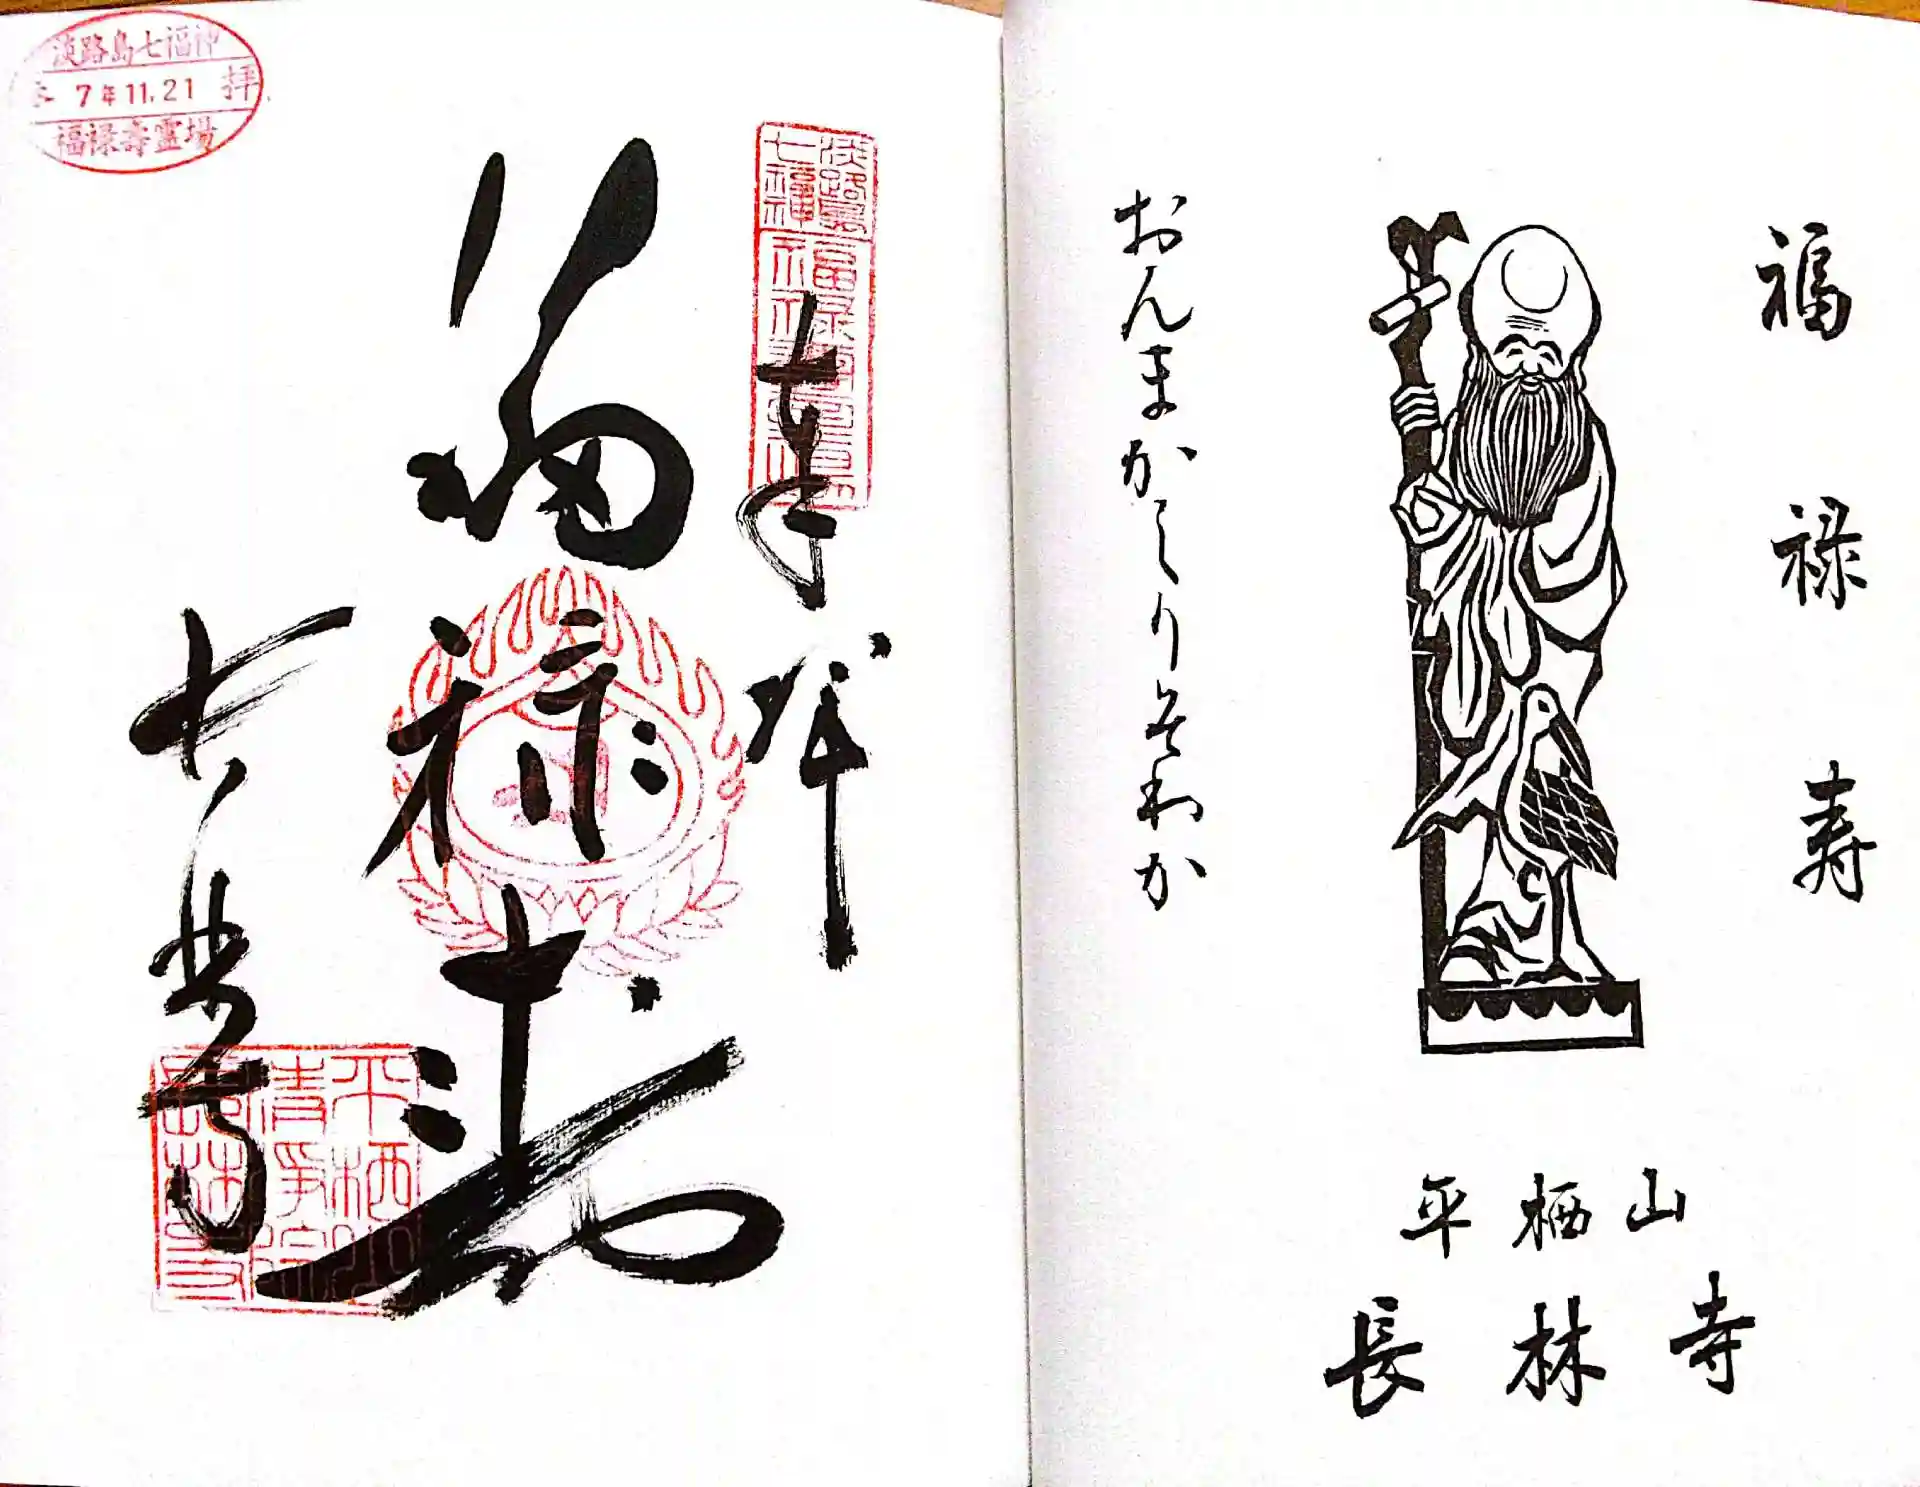 福禄寿
おんまかしりそわか
平栖山
長林寺
淡路島七福神
7年11.21
拝
福禄壽靈場
奉拝
福禄寿
長林寺
淡路島七福神
平栖山
清浄院
長林寺